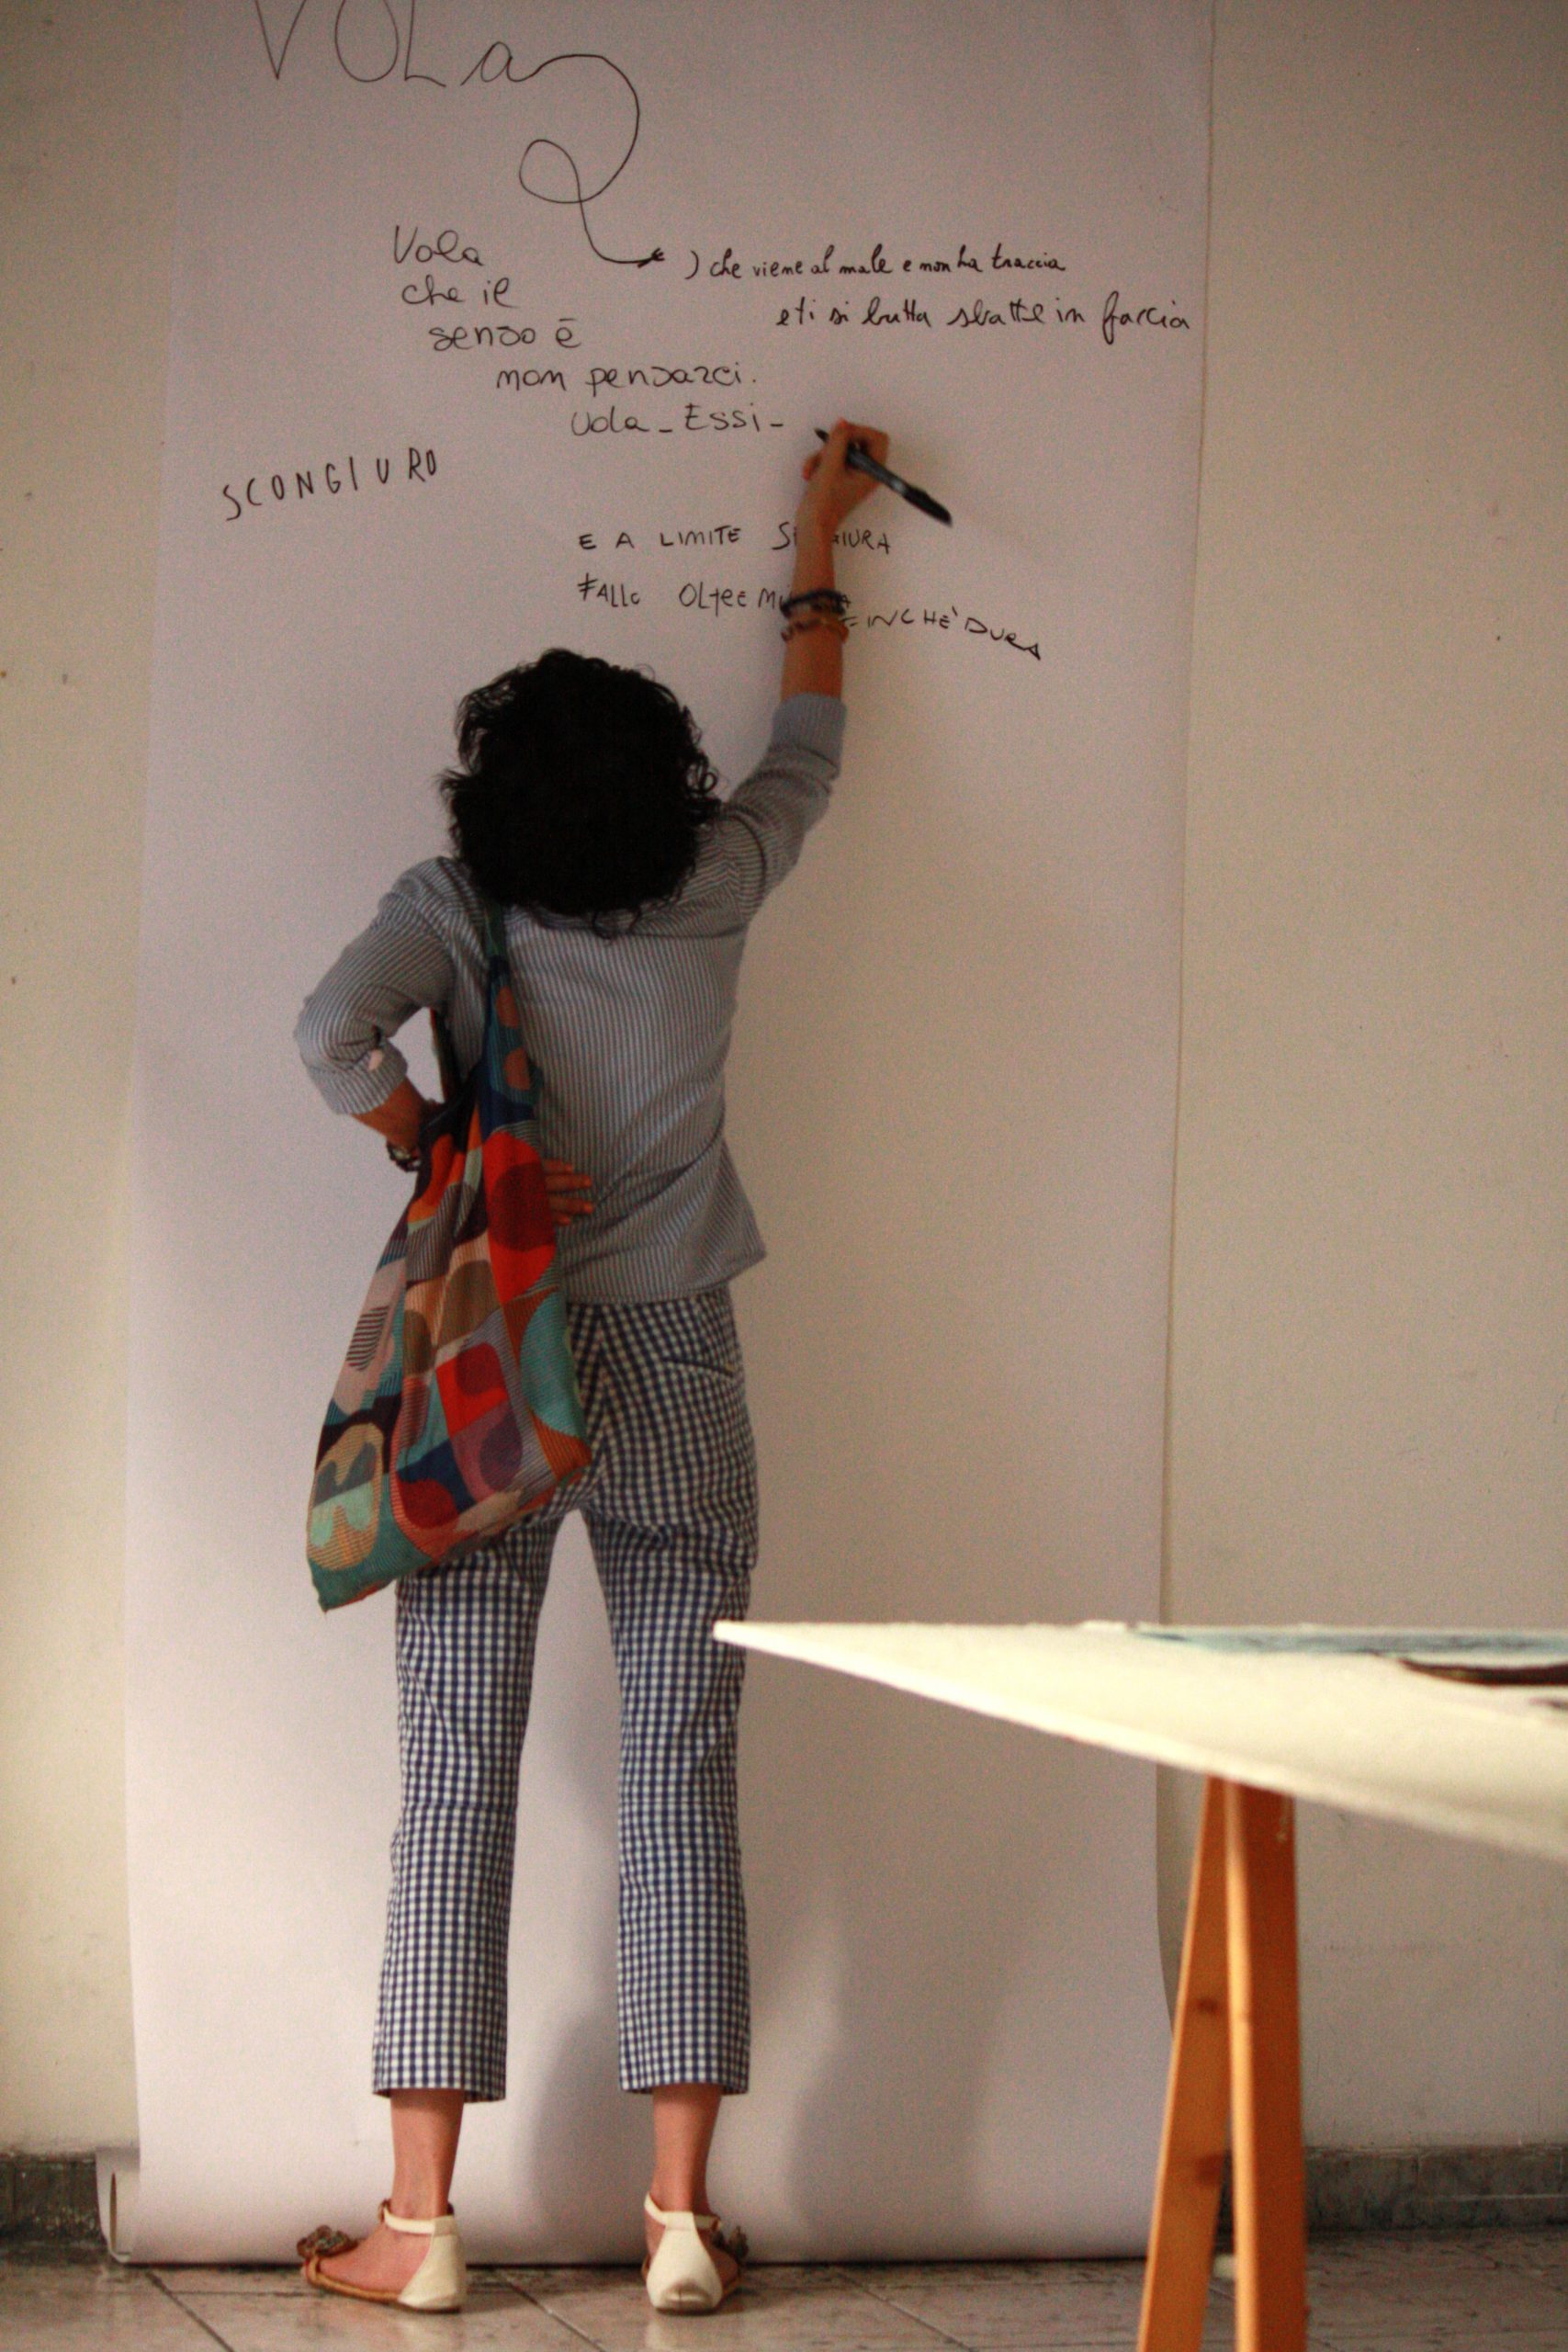 VOLa
Vola
che il
senso è
non pensarci.
Vola_Essi_
) che viene al male e non ha traccia
e ti si butta sbatte in faccia
SCONGIURO
E A LIMITE
FALLO OLTRE FINCHÈ DURA